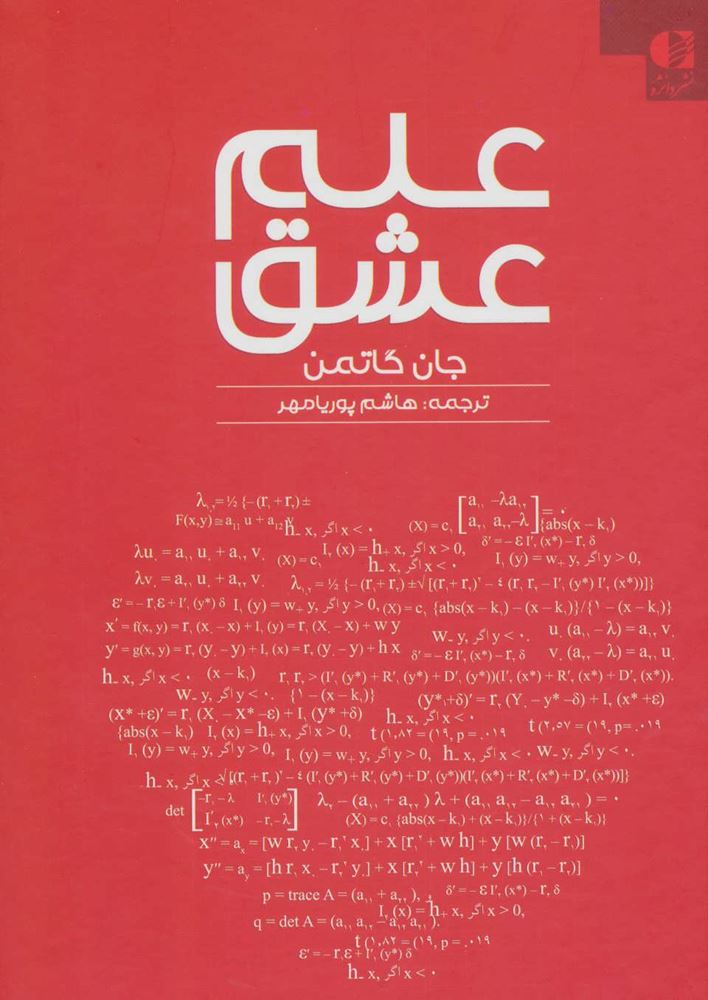 نشر دانژه
علم
عشق
جان گاتمن
ترجمه: هاشم پوریامهر
λ₁,₂=½ {–(r₁+r₂)±
F(x,y)≅a₁₁ u+a₁₂ v
h₋ x, اگر x<۰
(X)=c₁
[a₁₁ –λ a₁₂
a₂₁ a₂₂–λ]=۰
{abs(x–k₁)
λu.=a₁₁ u.+a₁₂ v.
(X)=c₁
I₁ (x)=h₊ x, اگر x>0,
δ'=–ε I'₁ (x*)–r₂ δ
h₋ x, اگر x<۰
I₁ (y)=w₊ y, اگر y>0,
λv.=a₂₁ u.+a₂₂ v.
λ₁,₂=½ {–(r₁+r₂)±√[(r₁+r₂)²–٤(r₁ r₂–I'₁ (y*) I'₂ (x*))]}
ε'=–r₁ε+I'₁ (y*) δ I₁ (y)=w₊ y, اگر y>0, (X)=c₁ {abs(x–k₁)–(x–k₁)}/{۱–(x–k₁)}
x'=f(x, y)=r₁ (x.–x)+I₁ (y)=r₁ (X.–x)+w y
w₋ y, اگر y<۰.
u. (a₁₁–λ)=a₁₂ v.
y'=g(x, y)=r₂ (y.–y)+I₂ (x)=r₂ (y.–y)+h x
δ'=–ε I'₂ (x*)–r₂ δ
v. (a₂₂–λ)=a₂₁ u.
h₋ x, اگر x<۰
(x–k₁)
r₁ r₂>(I'₁ (y*)+R'₁ (y*)+D'₁ (y*))(I'₂ (x*)+R'₂ (x*)+D'₂ (x*)).
w₋ y, اگر y<۰.
{۱–(x–k₁)}
(y*+δ)'=r₂ (Y.–y*–δ)+I₂ (x*+ε)
(x*+ε)'=r₁ (X.–x*–ε)+I₁ (y*+δ)
h₋ x, اگر x<۰
{abs(x–k₁)
I₁ (x)=h₊ x, اگر x>0,
t(۱,۸۲=(۱۹, p=.۰۱۹
t(۲,۵۷=(۱۹, p=.۰۱۹
I₁ (y)=w₊ y, اگر y>0,
I₁ (y)=w₊ y, اگر y>0,
h₋ x, اگر x<۰
w₋ y, اگر y<۰.
h₋ x, اگر x<
√[(r₁+r₂)²–٤(I'₁ (y*)+R'₁ (y*)+D'₁ (y*))(I'₂ (x*)+R'₂ (x*)+D'₂ (x*))]}
det [–r₁–λ I'₁ (y*)
I'₂ (x*) –r₂–λ]
λ²–(a₁₁+a₂₂) λ+(a₁₁ a₂₂–a₁₂ a₂₁)=۰
(X)=c₁ {abs(x–k₁)+(x–k₁)}/{۱+(x–k₁)}
x''=aₓ=[w r₂ y.–r₁² x.]+x [r₁²+w h]+y [w (r₂–r₁)]
y''=aᵧ=[h r₁ x.–r₂² y.]+x [r₂²+w h]+y [h (r₁–r₂)]
p=trace A=(a₁₁+a₂₂),
δ'=–ε I'₂ (x*)–r₂ δ
I₁ (x)=h₊ x, اگر x>0,
q=det A=(a₁₁ a₂₂–a₁₂ a₂₁).
t(۱,۸۲=(۱۹, p=.۰۱۹
ε'=–r₁ε+I'₁ (y*) δ
h₋ x, اگر x<۰